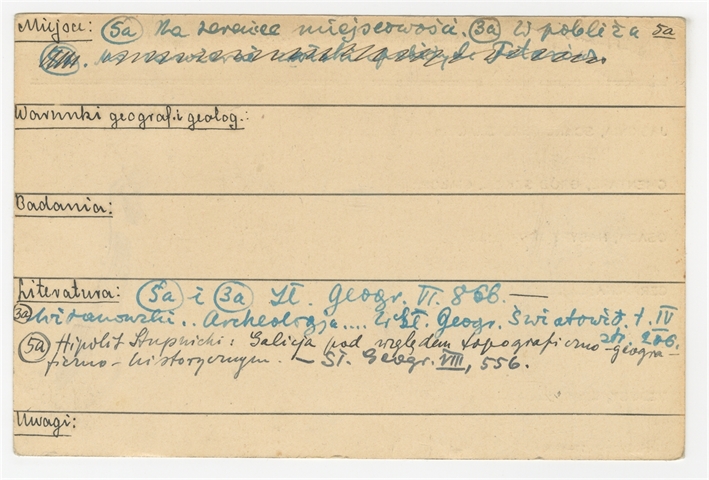 Miejsce: (5a) Na terenie miejscowości. (3a) W pobliżu 5a
Warunki geograf. i geolog.:
Badania:
Literatura: (5a) i (3a) Sł. Geogr. VI. 866. —
(3a) Witanowski.. Archeologja.... w Sł. Geogr. Światowit, t. IV
str. 206.
(5a) Hipolit Stupnicki: Galicja pod względem topograficzno-geogra-
ficzno-historycznym. — Sł. Geogr. VIII, 556.
Uwagi: